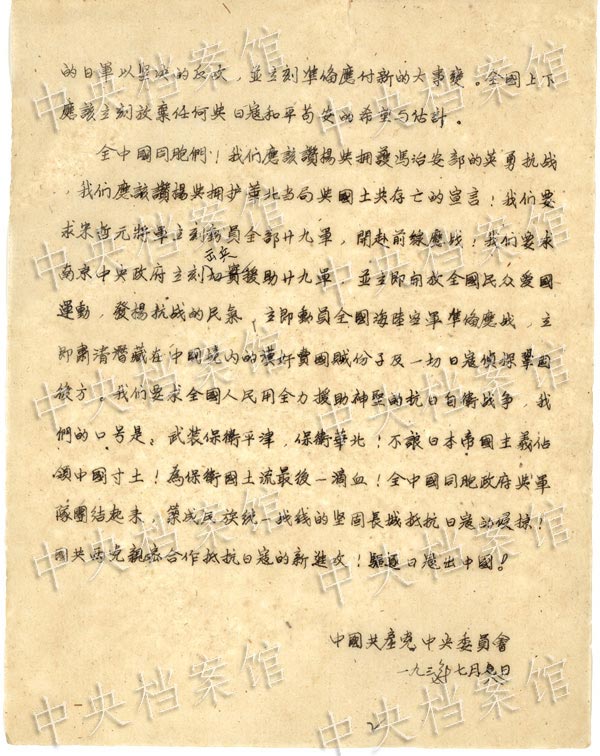 的日軍以堅決的反攻，並立刻準備應付新的大事變。全國上下
應該立刻放棄任何與日寇和平苟安的希望与估計。
全中國同胞們！我們應該讚揚與擁護馮治安部的英勇抗战
，我們應該讚揚與拥护華北当局與國土共存亡的宣言！我們要
求宋哲元將軍立刻動員全部廿九軍，開赴前綫應战！我們要求
南京中央政府立刻切實援助廿九軍，並立即開放全國民众爱國
運動，發揚抗战的民氣，立即動員全國海陸空軍準備應战，立
即肅清潛藏在中國境內的漢奸賣國賊份子及一切日寇侦探鞏固
後方。我們要求全國人民用全力援助神聖的抗日自衛战爭，我
們的口号是：武装保衛平津，保衛華北！不讓日本帝國主義佔
領中國寸土！為保衛國土流最後一滴血！全中國同胞政府與軍
隊團結起来，築成民族統一战线的坚固長城抵抗日寇的侵掠！
國共兩党親密合作抵抗日寇的新進攻！驅逐日寇出中國！
中國共產党中央委員會
一九三七年七月八日
2
中央档案馆